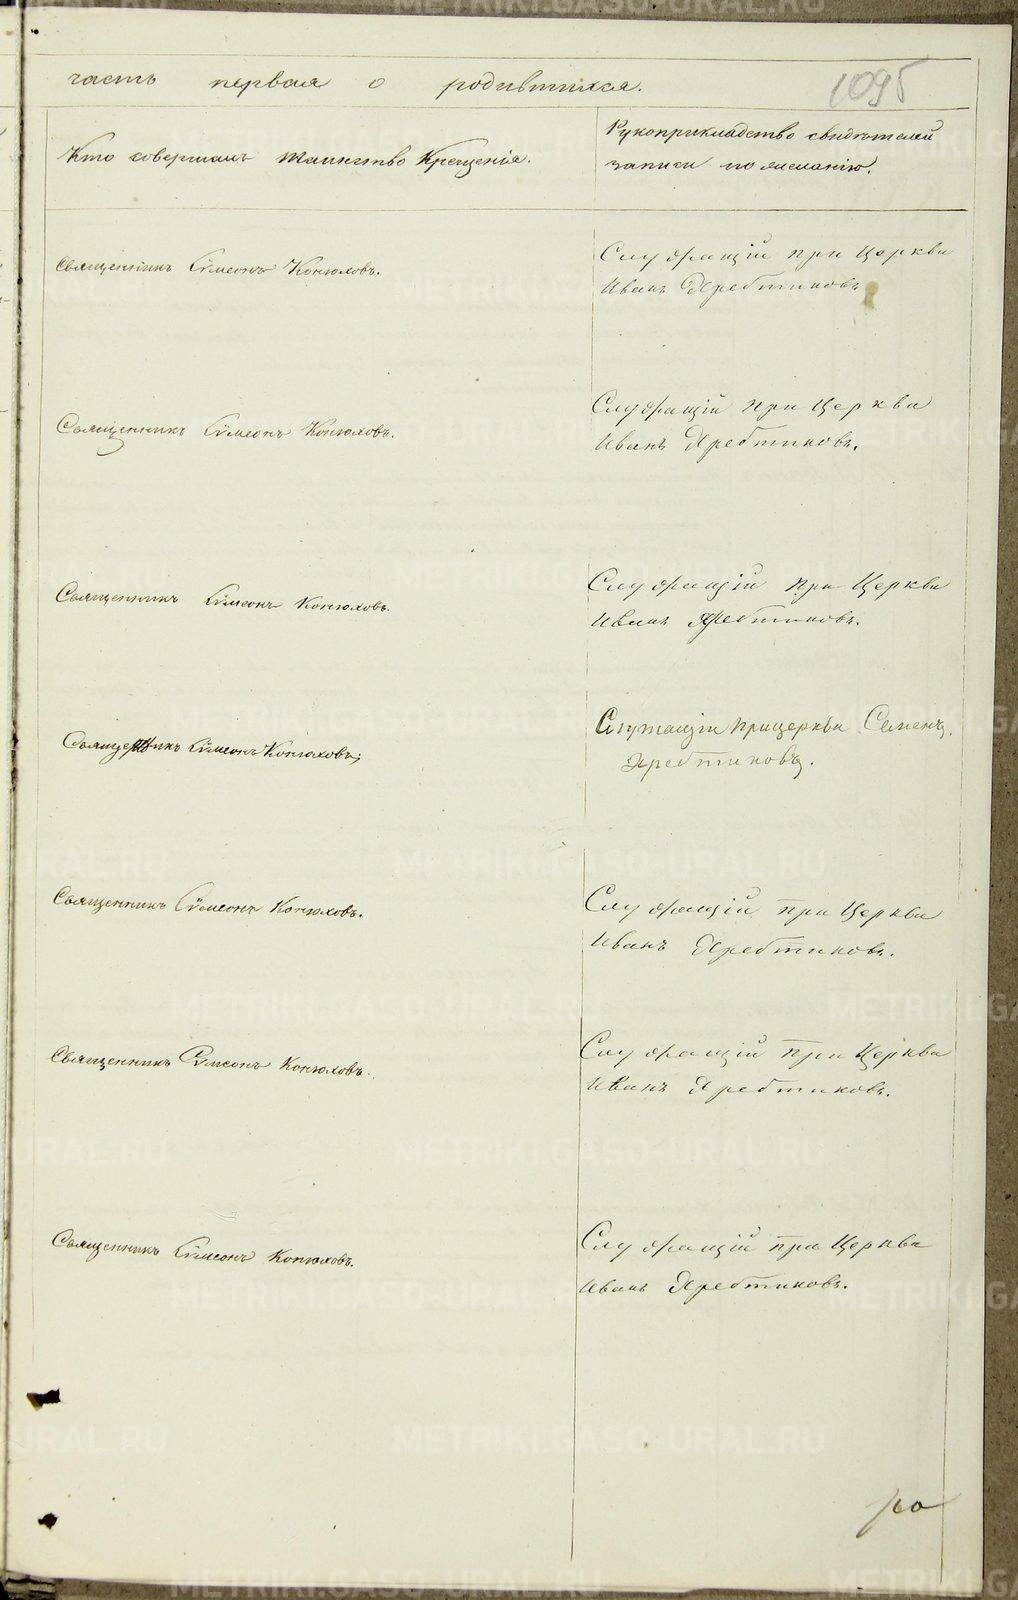 часть первая о родившихся.
1095
Кто совершалъ таинство Крещенія.
Рукоприкладство свидѣтелей
записи по желанію.
Священникъ Сѵмеонъ Конюховъ.
Служащій при Церкви
Иванъ Ярєбтиковъ
Священникъ Сѵмеонъ Конюховъ.
Служащій при Церкви
Иванъ Яребтиковъ.
Священникъ Сѵмеонъ Конюховъ.
Служащій при Церкви
Иванъ Яребтиковъ.
Священникъ Сѵмеонъ Конюховъ;
Служащіи прицеркви Семенъ
Яребтиковъ.
Священникъ Сѵмеонъ Конюховъ.
Служащій при Церкви
Иванъ Яребтиковъ.
Священникъ Сѵмеонъ Конюховъ.
Служащій при Церкви
Иванъ Яребтиковъ.
Священникъ Сѵмеонъ Конюховъ.
Служащій при Церкви
Иванъ Яребтиковъ.
METRIKI.GASO-URAL.RU